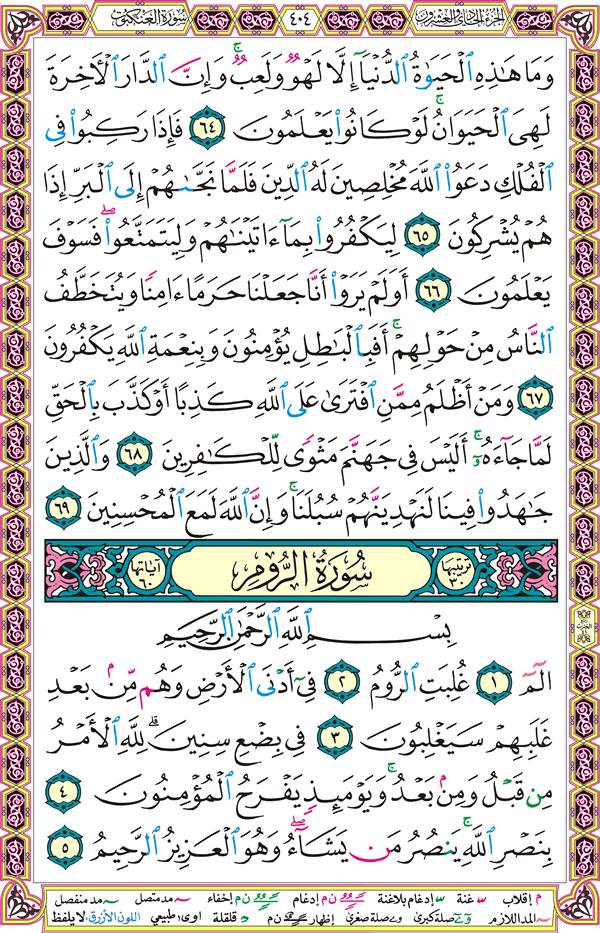 الجزء الحادي والعشرون ٤٠٤ سورة العنكبوت
وَمَا هَٰذِهِ ٱلْحَيَوٰةُ ٱلدُّنْيَآ إِلَّا لَهْوٌ وَلَعِبٌ ۚ وَإِنَّ ٱلدَّارَ ٱلْأَخِرَةَ
لَهِىَ ٱلْحَيَوَانُ ۚ لَوْ كَانُوا۟ يَعْلَمُونَ ٦٤ فَإِذَا رَكِبُوا۟ فِى
ٱلْفُلْكِ دَعَوُا۟ ٱللَّهَ مُخْلِصِينَ لَهُ ٱلدِّينَ فَلَمَّا نَجَّىٰهُمْ إِلَى ٱلْبَرِّ إِذَا
هُمْ يُشْرِكُونَ ٦٥ لِيَكْفُرُوا۟ بِمَآ ءَاتَيْنَٰهُمْ وَلِيَتَمَتَّعُوا۟ ۖ فَسَوْفَ
يَعْلَمُونَ ٦٦ أَوَلَمْ يَرَوْا۟ أَنَّا جَعَلْنَا حَرَمًا ءَامِنًا وَيُتَخَطَّفُ
ٱلنَّاسُ مِنْ حَوْلِهِمْ ۚ أَفَبِٱلْبَٰطِلِ يُؤْمِنُونَ وَبِنِعْمَةِ ٱللَّهِ يَكْفُرُونَ
٦٧ وَمَنْ أَظْلَمُ مِمَّنِ ٱفْتَرَىٰ عَلَى ٱللَّهِ كَذِبًا أَوْ كَذَّبَ بِٱلْحَقِّ
لَمَّا جَآءَهُۥٓ ۚ أَلَيْسَ فِى جَهَنَّمَ مَثْوًى لِّلْكَٰفِرِينَ ٦٨ وَٱلَّذِينَ
جَٰهَدُوا۟ فِينَا لَنَهْدِيَنَّهُمْ سُبُلَنَا ۚ وَإِنَّ ٱللَّهَ لَمَعَ ٱلْمُحْسِنِينَ ٦٩
ترتيبها ٣٠ سُورَةُ الرُّومِ آياتها ٦٠
بِسْمِ ٱللَّهِ ٱلرَّحْمَٰنِ ٱلرَّحِيمِ
الٓمٓ ١ غُلِبَتِ ٱلرُّومُ ٢ فِىٓ أَدْنَى ٱلْأَرْضِ وَهُم مِّنۢ بَعْدِ
غَلَبِهِمْ سَيَغْلِبُونَ ٣ فِى بِضْعِ سِنِينَ ۗ لِلَّهِ ٱلْأَمْرُ
مِن قَبْلُ وَمِنۢ بَعْدُ ۚ وَيَوْمَئِذٍ يَفْرَحُ ٱلْمُؤْمِنُونَ ٤
بِنَصْرِ ٱللَّهِ ۚ يَنصُرُ مَن يَشَآءُ ۖ وَهُوَ ٱلْعَزِيزُ ٱلرَّحِيمُ ٥
م إقلاب غنة إدغام بلاغنة ن م إدغام إخفاء مد متصل مد منفصل
المد اللازم صلة كبرى صلة صغرى إظهار ن م قلقلة اوى طبيعي اللون الأزرق: لا يلفظ